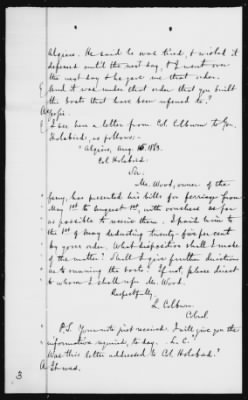 Algiers. He said he was tired, & wished it
deferred until the next day, & I went over
the next day & he gave me that order.
Q And it was under that order that you built
the boats that have been referred to?
A Yes
Q I see here a letter from Col. Colburn to Gen.
Holabird, as follows:-
"Algiers, Aug 15" 1863.
Col. Holabird.
Sir:
Mr. Wood, owner of the
ferry, has presented his bills for ferriage from
May 1st to August 1st, with vouchers as far
as possible to secure them. I paid him to
the 1st of May deducting twenty-five per cent
by your order. What disposition shall I make
of the matter? Shall I give further directions
as to running the boats? If not, please direct
to whom I shall refer Mr. Wood.
Respectfully,
L. Colburn.
Col.
P.S. Your note just received. I will give you the
information required, to day. L. C."
Was this letter addressed to Col. Holabird?
A It was.
3